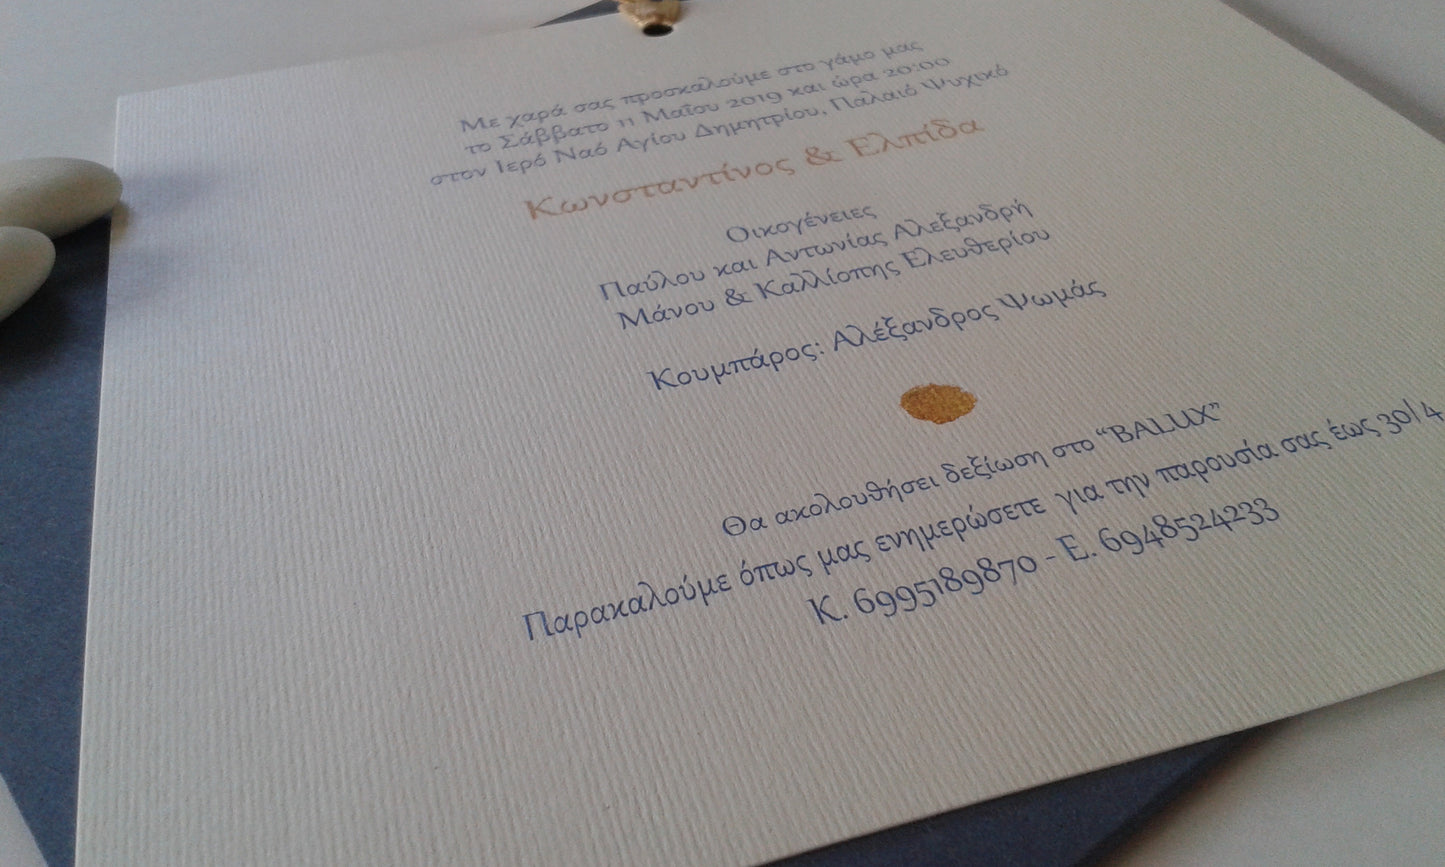 Με χαρά σας προσκαλούμε στο γάμο μας
το Σάββατο 11 Μαΐου 2019 και ώρα 20:00
στον Ιερό Ναό Αγίου Δημητρίου, Παλαιό Ψυχικό
Κωνσταντίνος & Ελπίδα
Οικογένειες
Παύλου και Αντωνίας Αλεξανδρή
Μάνου & Καλλίοπης Ελευθερίου
Κουμπάρος: Αλέξανδρος Ψωμάς
Θα ακολουθήσει δεξίωση στο “BALUX”
Παρακαλούμε όπως μας ενημερώσετε για την παρουσία σας έως 30/4
Κ. 6995189870 - Ε. 6948524233